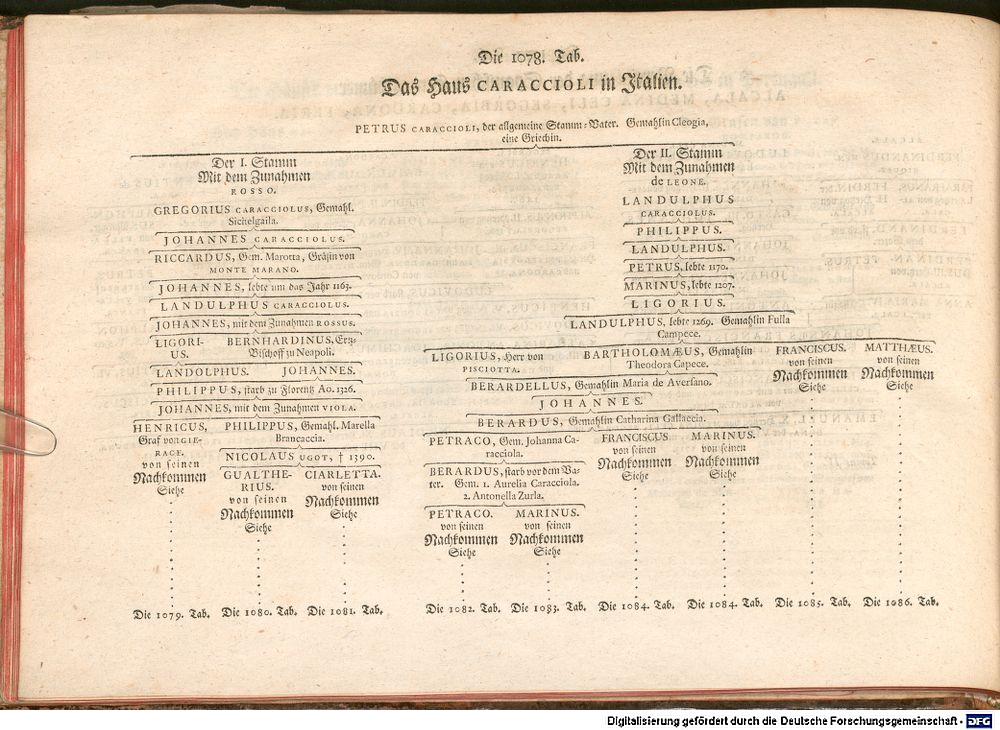 Die 1078. Tab.
Das Haus CARACCIOLI in Italien.
PETRUS CARACCIOLI, der allgemeine Stamm-Vater. Gemahlin Cleogia,
eine Griechin.
Der I. Stamm
Mit dem Zunahmen
ROSSO.
GREGORIUS CARACCIOLUS, Gemahl.
Sichelgaila.
JOHANNES CARACCIOLUS.
RICCARDUS, Gem. Marotta, Gräfin von
MONTE MARANO.
JOHANNES, lebte um das Jahr 1163.
LANDULPHUS CARACCIOLUS.
JOHANNES, mit dem Zunahmen ROSSUS.
LIGORI-
US.
BERNHARDINUS, Ertz-
Bischoff zu Neapoli.
LANDOLPHUS.
JOHANNES.
PHILIPPUS, starb zu Florentz Ao. 1326.
JOHANNES, mit dem Zunahmen VIOLA.
HENRICUS,
Graf von GIE-
RACE.
von seinen
Nachkommen
Siehe
PHILIPPUS, Gemahl. Marella
Brancaccia.
NICOLAUS UGOT, † 1390.
GUALTHE-
RIUS.
von seinen
Nachkommen
Siehe
CIARLETTA.
von seinen
Nachkommen
Siehe
Der II. Stamm
Mit dem Zunahmen
de LEONE.
LANDULPHUS
CARACCIOLUS.
PHILIPPUS.
LANDULPHUS.
PETRUS, lebte 1170.
MARINUS, lebte 1207.
LIGORIUS.
LANDULPHUS, lebte 1269. Gemahlin Fulla
Campece.
LIGORIUS, Herr von
PISCIOTTA.
BARTHOLOMÆUS, Gemahlin
Theodora Capece.
FRANCISCUS.
von seinen
Nachkommen
Siehe
MATTHÆUS.
von seinen
Nachkommen
Siehe
BERARDELLUS, Gemahlin Maria de Aversano.
JOHANNES.
BERARDUS, Gemahlin Catharina Gallaccia.
PETRACO, Gem. Johanna Ca-
racciola.
FRANCISCUS
von seinen
Nachkommen
Siehe
MARINUS.
von seinen
Nachkommen
Siehe
BERARDUS, starb vor dem Va-
ter. Gem. 1. Aurelia Caracciola.
2. Antonella Zurla.
PETRACO.
von seinen
Nachkommen
Siehe
MARINUS.
von seinen
Nachkommen
Siehe
Die 1079. Tab. Die 1080. Tab. Die 1081. Tab. Die 1082. Tab. Die 1083. Tab. Die 1084. Tab. Die 1084. Tab. Die 1085. Tab. Die 1086. Tab.
Digitalisierung gefördert durch die Deutsche Forschungsgemeinschaft - DFG